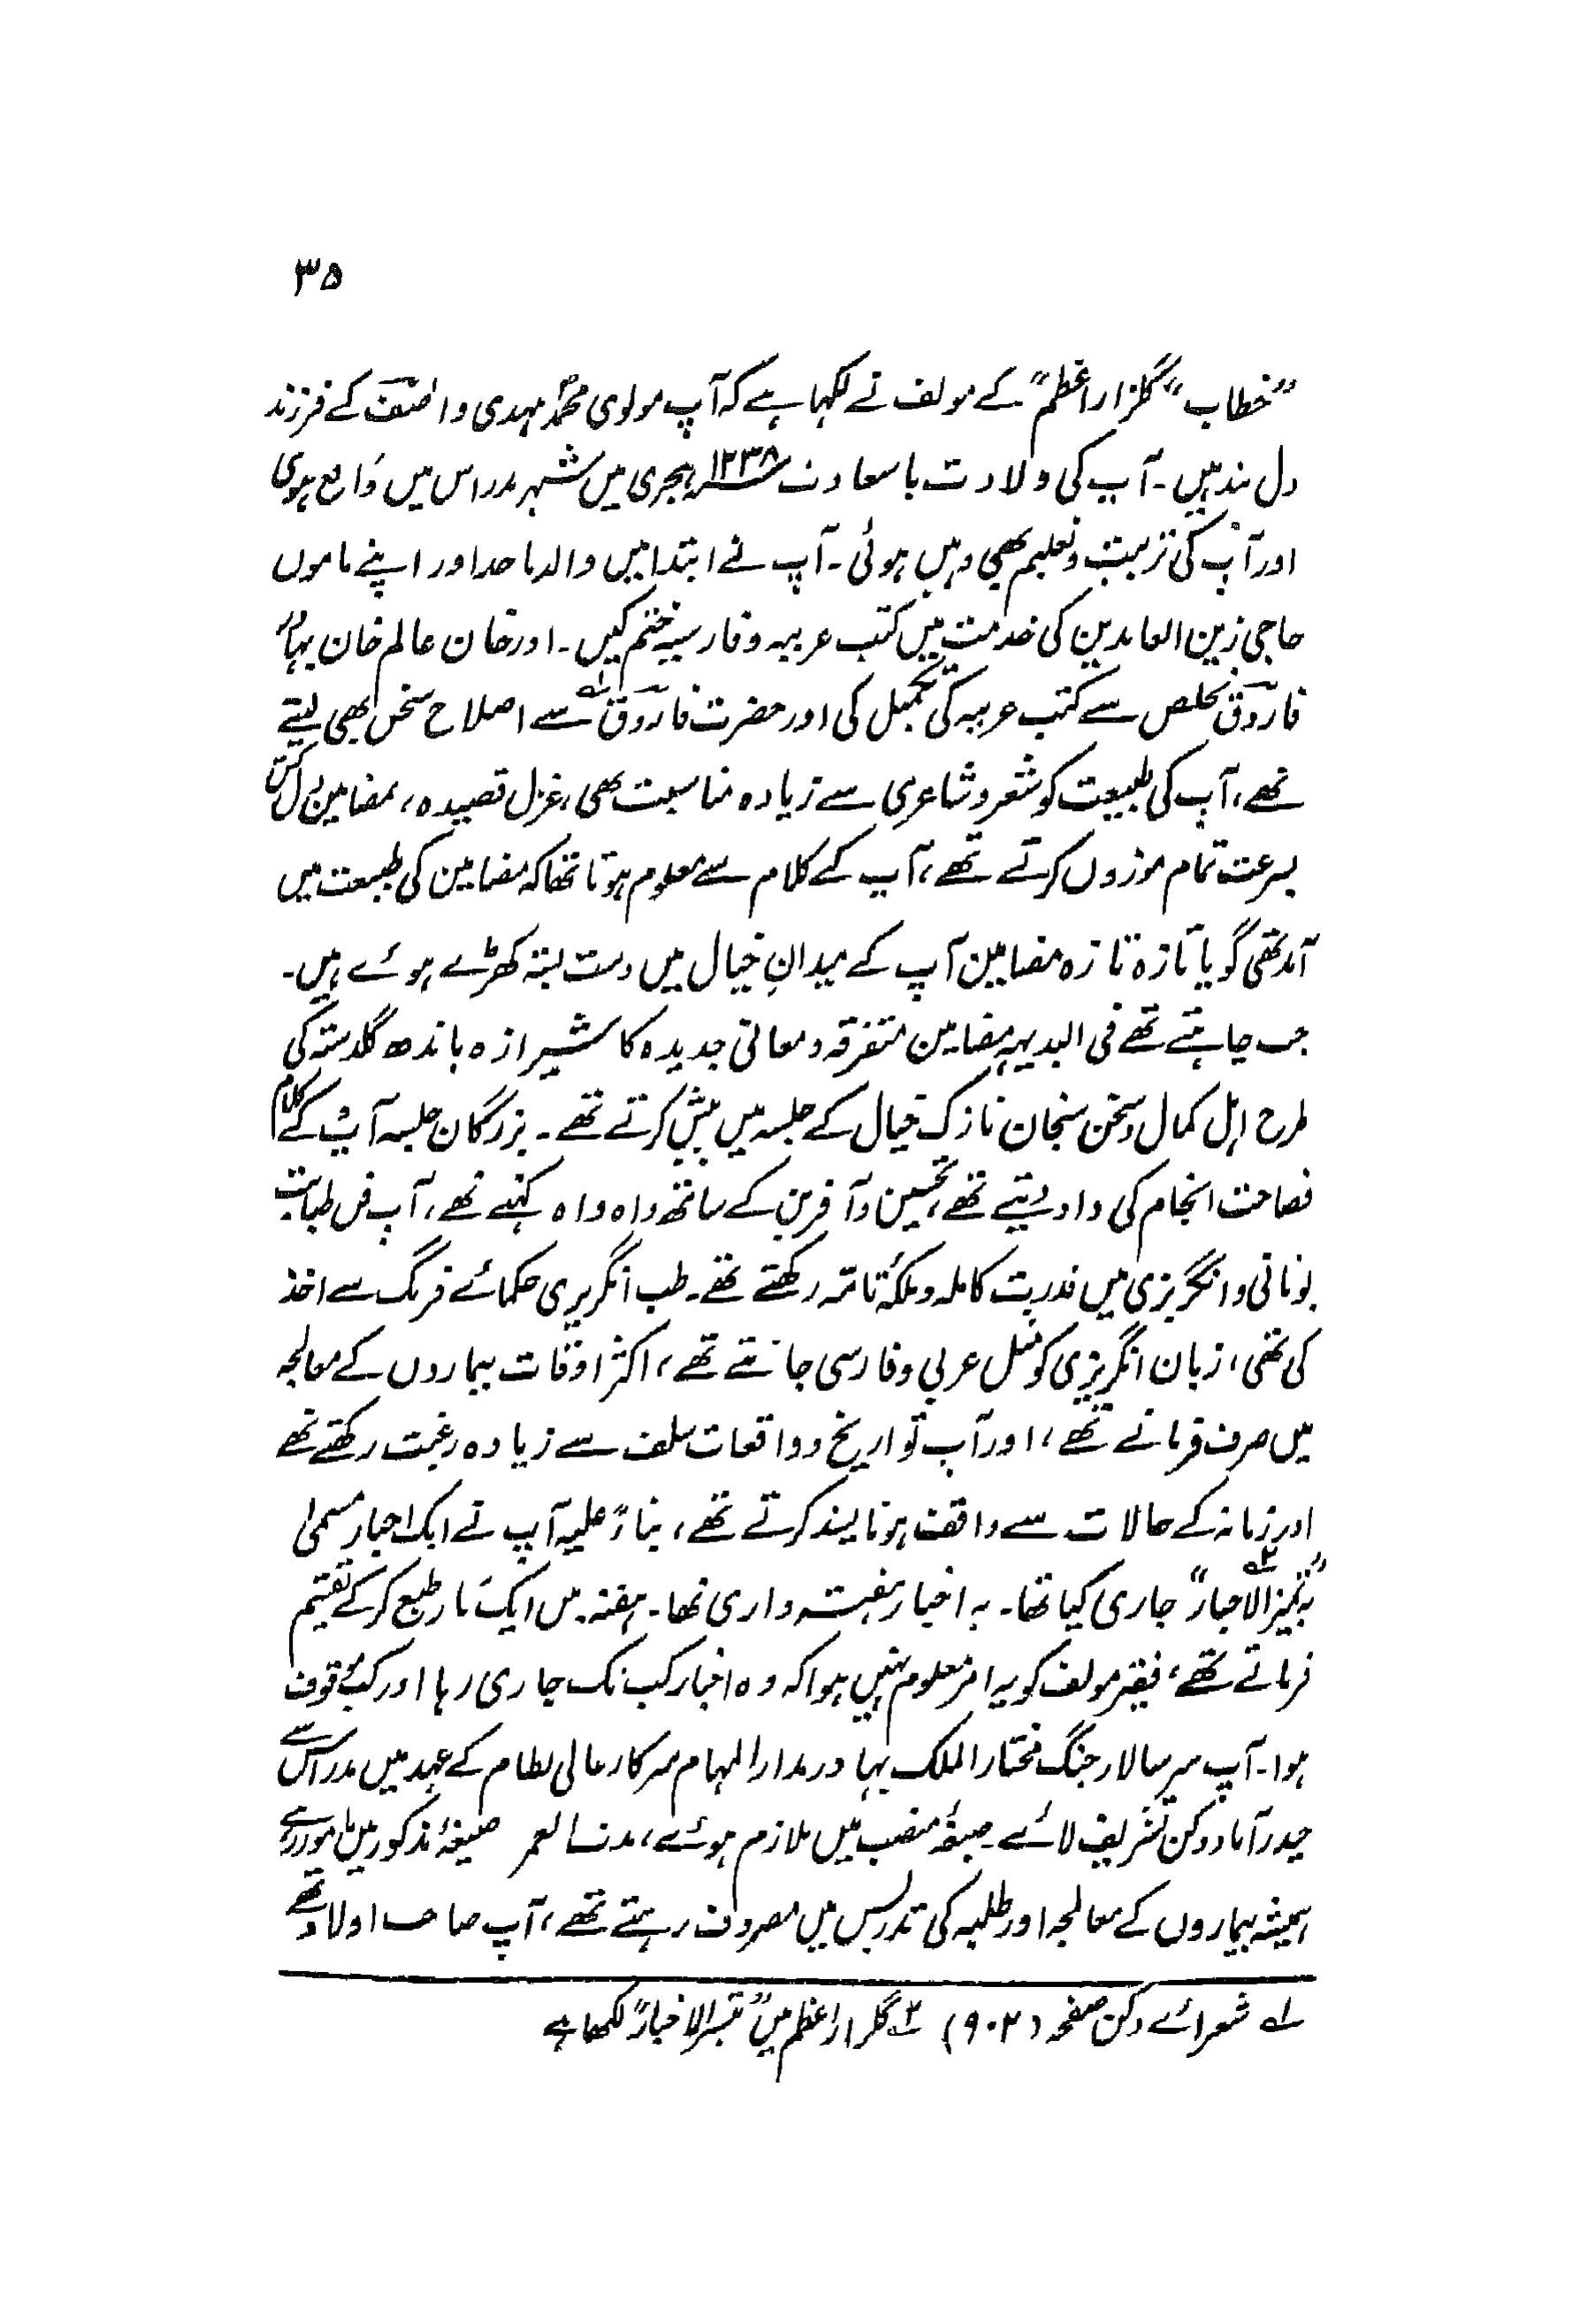 ۳۵
”خطاب“ گلزار اعظم“ کے مولف نے لکہا ہے کہ آپ مولوی محمد مہدی واصف کے فرزند
دل بند ہیں۔ آپ کی ولادت باسعادت ۱۲۳۸ ہجری میں شہر مدراس میں واقع ہوی
اور آپ کی تربیت و تعلیم بھی وہیں ہوئی۔ آپ نے ابتدا میں والد ماجد اور اپنے ماموں
حاجی زین العابدین کی خدمت میں کتب عربیہ و فارسیہ ختم کیں۔ اور خان عالم خان بہادر
فاروق تخلص سے کتب عربیہ کی تکمیل کی اور حضرت فاروق ؎۱ سے اصلاح سخن بھی لیتے
تھے، آپ کی طبیعت کو شعر و شاعری سے زیادہ مناسبت تھی، غزل قصیدہ، مضامین دل کش
بسرعت تمام موزوں کرتے تھے، آپ کے کلام سے معلوم ہوتا تھا کہ مضامین کی طبیعت میں
آمد تھی گویا تازہ تازہ مضامین آپ کے میدانِ خیال میں دست بستہ کھڑے ہوئے ہیں۔
جب چاہتے تھے فی البدیہہ مضامین متفرقہ و معانی جدیدہ کا شیرازہ باندھ گلدستہ کی
طرح اہل کمال و سخن سنجان نازک خیال کے جلسہ میں پیش کرتے تھے۔ بزرگان جلسہ آپ کے کلام
فصاحت انجام کی داد دیتے تھے، تحسین و آفرین کے ساتھ واہ واہ کہتے تھے، آپ فن طبابت
یونانی و انگریزی میں قدرت کاملہ و ملکۂ تامہ رکھتے تھے۔ طب انگریزی حکمائے فرنگ سے اخذ
کی تھی، زبان انگریزی کو مثل عربی و فارسی جانتے تھے، اکثر اوقات بیماروں کے معالجہ
میں صرف فرماتے تھے، اور آپ تواریخ و واقعات سلف سے زیادہ رغبت رکھتے تھے
اور زمانہ کے حالات سے واقف ہونا پسند کرتے تھے، بناءً علیہ آپ نے ایک اخبار مسمیٰ
بہ ”تمیز الاخبار“ ؎۲ جاری کیا تھا۔ یہ اخبار ہفتہ واری تھا۔ ہفتہ میں ایک بار طبع کر کے تقسیم
فرماتے تھے، فقیر مولف کو یہ امر معلوم نہیں ہوا کہ وہ اخبار کب تک جاری رہا اور کب موقوف
ہوا۔ آپ سر سالار جنگ مختار الملک بہادر مدار المہام سرکار عالی نظام کے عہد میں مدراس سے
حیدرآباد دکن تشریف لائے۔ صیغۂ منصب میں ملازم ہوئے، مدت العمر صیغۂ مذکور میں مامور رہے
ہمیشہ بیماروں کے معالجہ اور طلبہ کی تدریس میں مصروف رہتے تھے، آپ صاحب اولاد تھے
؎۱ شعرائے دکن صفحہ (۹۰۲) ؎۲ گلزار اعظم میں ”تیسیر الاخبار“ لکھا ہے